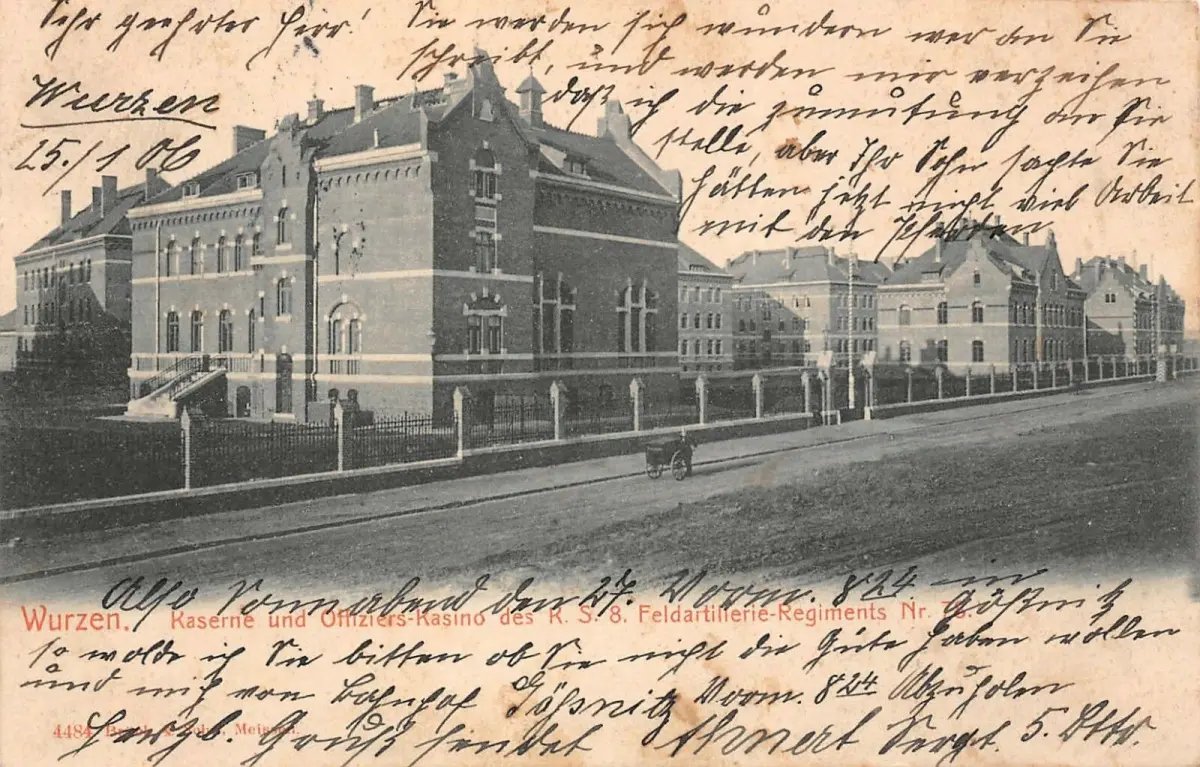 Sehr geehrter Herr!
Sie werden sich wundern wer an Sie
schreibt, und werden mir verzeihen
daß ich die zumutung an Sie
stelle, aber Ihr Sohn sachte Sie
hätten jetzt nicht viel Arbeit
mit den Pferden
Wurzen
25./1 06
Also Sonnabend den 27. Vorm. 824 in Gößnitz
Wurzen. Kaserne und Offiziers-Kasino des K. S. 8. Feldartillerie-Regiments Nr. 78.
so wolde ich Sie bitten ob Sie nicht die Güte haben wollen
und mich von Bahnhof Gößnitz Vorm. 824 Abzuholen
4484 Meissen.
Herzl. Gruß sendet Ahnert Sergt. 5. Bttr.